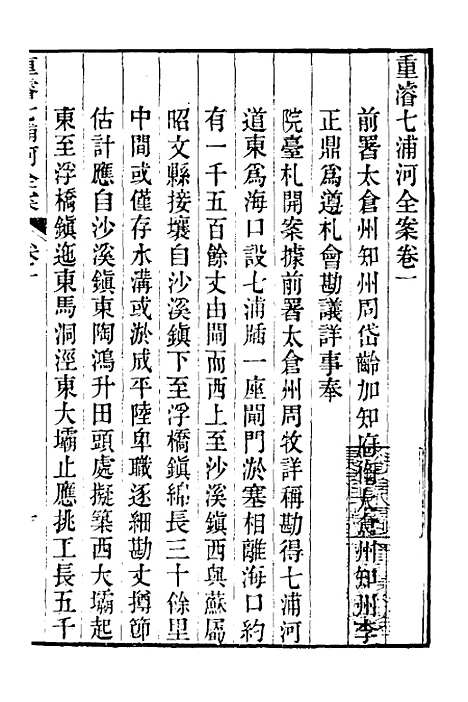 重濬七浦河全案卷一
前署太倉州知州周岱齡加知府銜太倉州知州李
正鼎爲遵札會勘議詳事奉
院臺札開案據前署太倉州周牧詳稱勘得七浦河
道東爲海口設七浦牐一座閘門淤塞相離海口約
有一千五百餘丈由閘而西上至沙溪鎭西與蘇屬
昭文縣接壤自沙溪鎭下至浮橋鎭綿長三十餘里
中間或僅存水溝或淤成平陸卑職逐細勘丈撙節
估計應自沙溪鎭東陶鴻升田頭處擬築西大壩起
東至浮橋鎭迤東馬洞涇東大壩止應挑工長五千
重濬七浦河全案 卷一 一